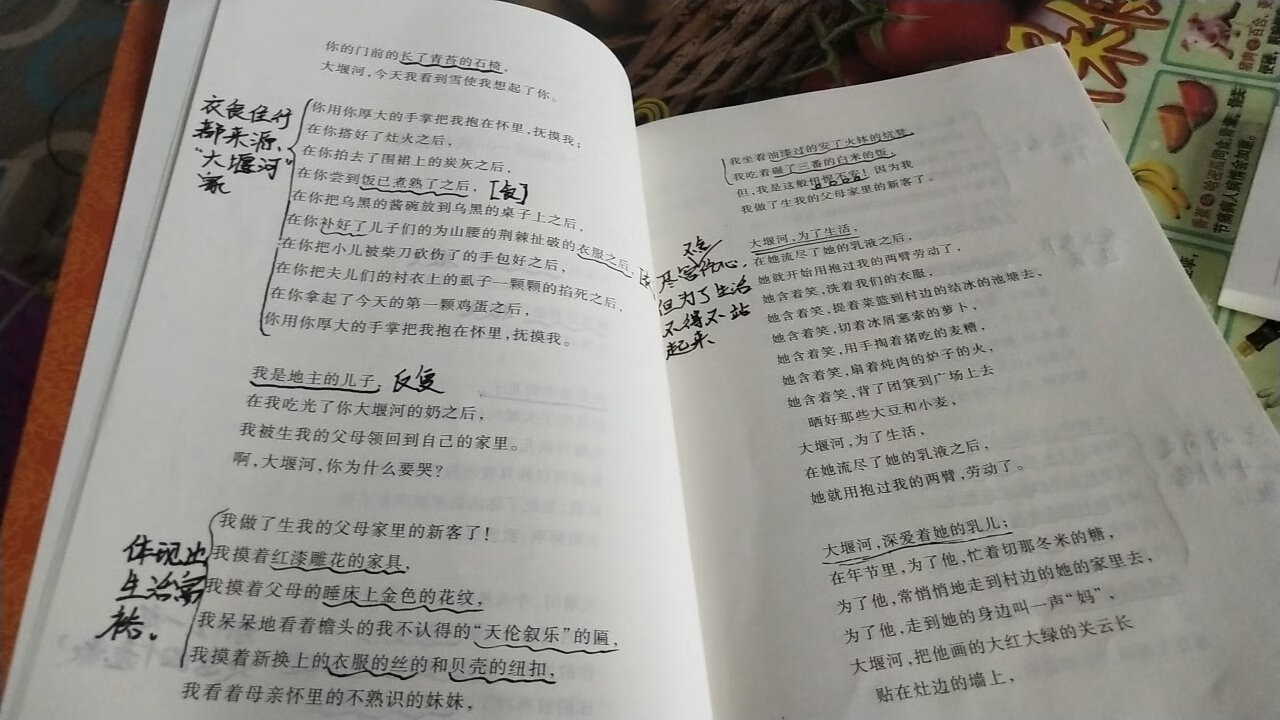 你的门前的长了青苔的石椅，
大堰河，今天我看到雪使我想起了你。
你用你厚大的手掌把我抱在怀里，抚摸我；
在你搭好了灶火之后，
在你拍去了围裙上的炭灰之后，
在你尝到饭已煮熟了之后，[食]
在你把乌黑的酱碗放到乌黑的桌子上之后，
在你补好了儿子们的为山腰的荆棘扯破的衣服之后，
在你把小儿被柴刀砍伤了的手包好之后，
在你把夫儿们的衬衣上的虱子一颗颗的掐死之后，
在你拿起了今天的第一颗鸡蛋之后，
你用你厚大的手掌把我抱在怀里，抚摸我。
衣食住行
都来源
“大堰河”
家
我是地主的儿子，反复
在我吃光了你大堰河的奶之后，
我被生我的父母领回到自己的家里。
啊，大堰河，你为什么要哭？
我做了生我的父母家里的新客了！
我摸着红漆雕花的家具，
我摸着父母的睡床上金色的花纹，
我呆呆地看着檐头的我不认得的“天伦叙乐”的匾，
我摸着新换上的衣服的丝的和贝壳的纽扣，
我看着母亲怀里的不熟识的妹妹，
体现出
生活富
裕。
我坐着油漆过的安了火钵的炕凳，
我吃着碾了三番的白米的饭，
但，我是这般忸怩不安！因为我
我做了生我的父母家里的新客了。
大堰河，为了生活，
在她流尽了她的乳液之后，
她就开始用抱过我的两臂劳动了，
她含着笑，洗着我们的衣服，
她含着笑，提着菜篮到村边的结冰的池塘去，
她含着笑，切着冰屑悉索的萝卜，
她含着笑，用手掏着猪吃的麦糟，
她含着笑，扇着炖肉的炉子的火，
她含着笑，背了团箕到广场上去
晒好那些大豆和小麦，
大堰河，为了生活，
在她流尽了她的乳液之后，
她就用抱过我的两臂，劳动了。
但为了生活
不得不站
起来
大堰河，深爱着她的乳儿；
在年节里，为了他，忙着切那冬米的糖，
为了他，常悄悄地走到村边的她的家里去，
为了他，走到她的身边叫一声“妈”，
大堰河，把他画的大红大绿的关云长
贴在灶边的墙上，